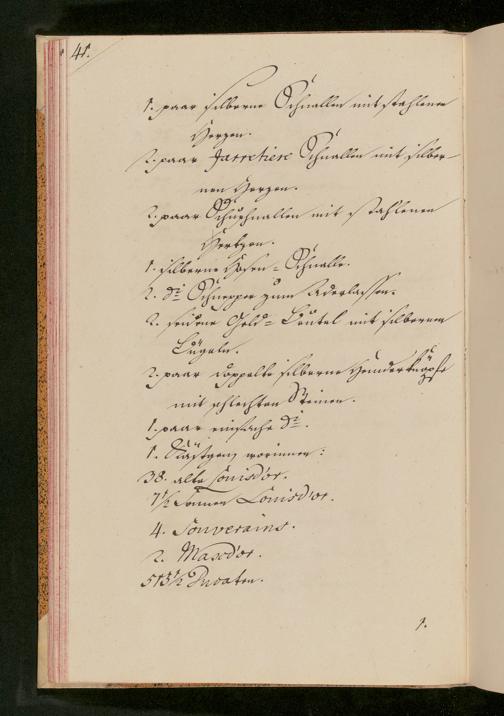 41.
1. paar silberne Schnallen mit stahlenen
Herzen.
2. paar Jarretiere Schnallen mit silber-
nen Herzen.
2. paar Schuhschnallen mit stahlenen
Hertzen.
1. silberne Hosen-Schnalle.
2. do Schnepper zum Aderlassen.
2. seidene Geld-Beutel mit silbernen
Bügeln.
2. paar doppelte silberne Hemderknöpfe
mit schlechten Steinen.
1. paar einfache do.
1. Kästgen worinnen:
38. alte Louisd'or.
7½ Sonnen Louisd'or.
4. Souverains.
2. Maxd'or.
513½ Ducaten.
1.